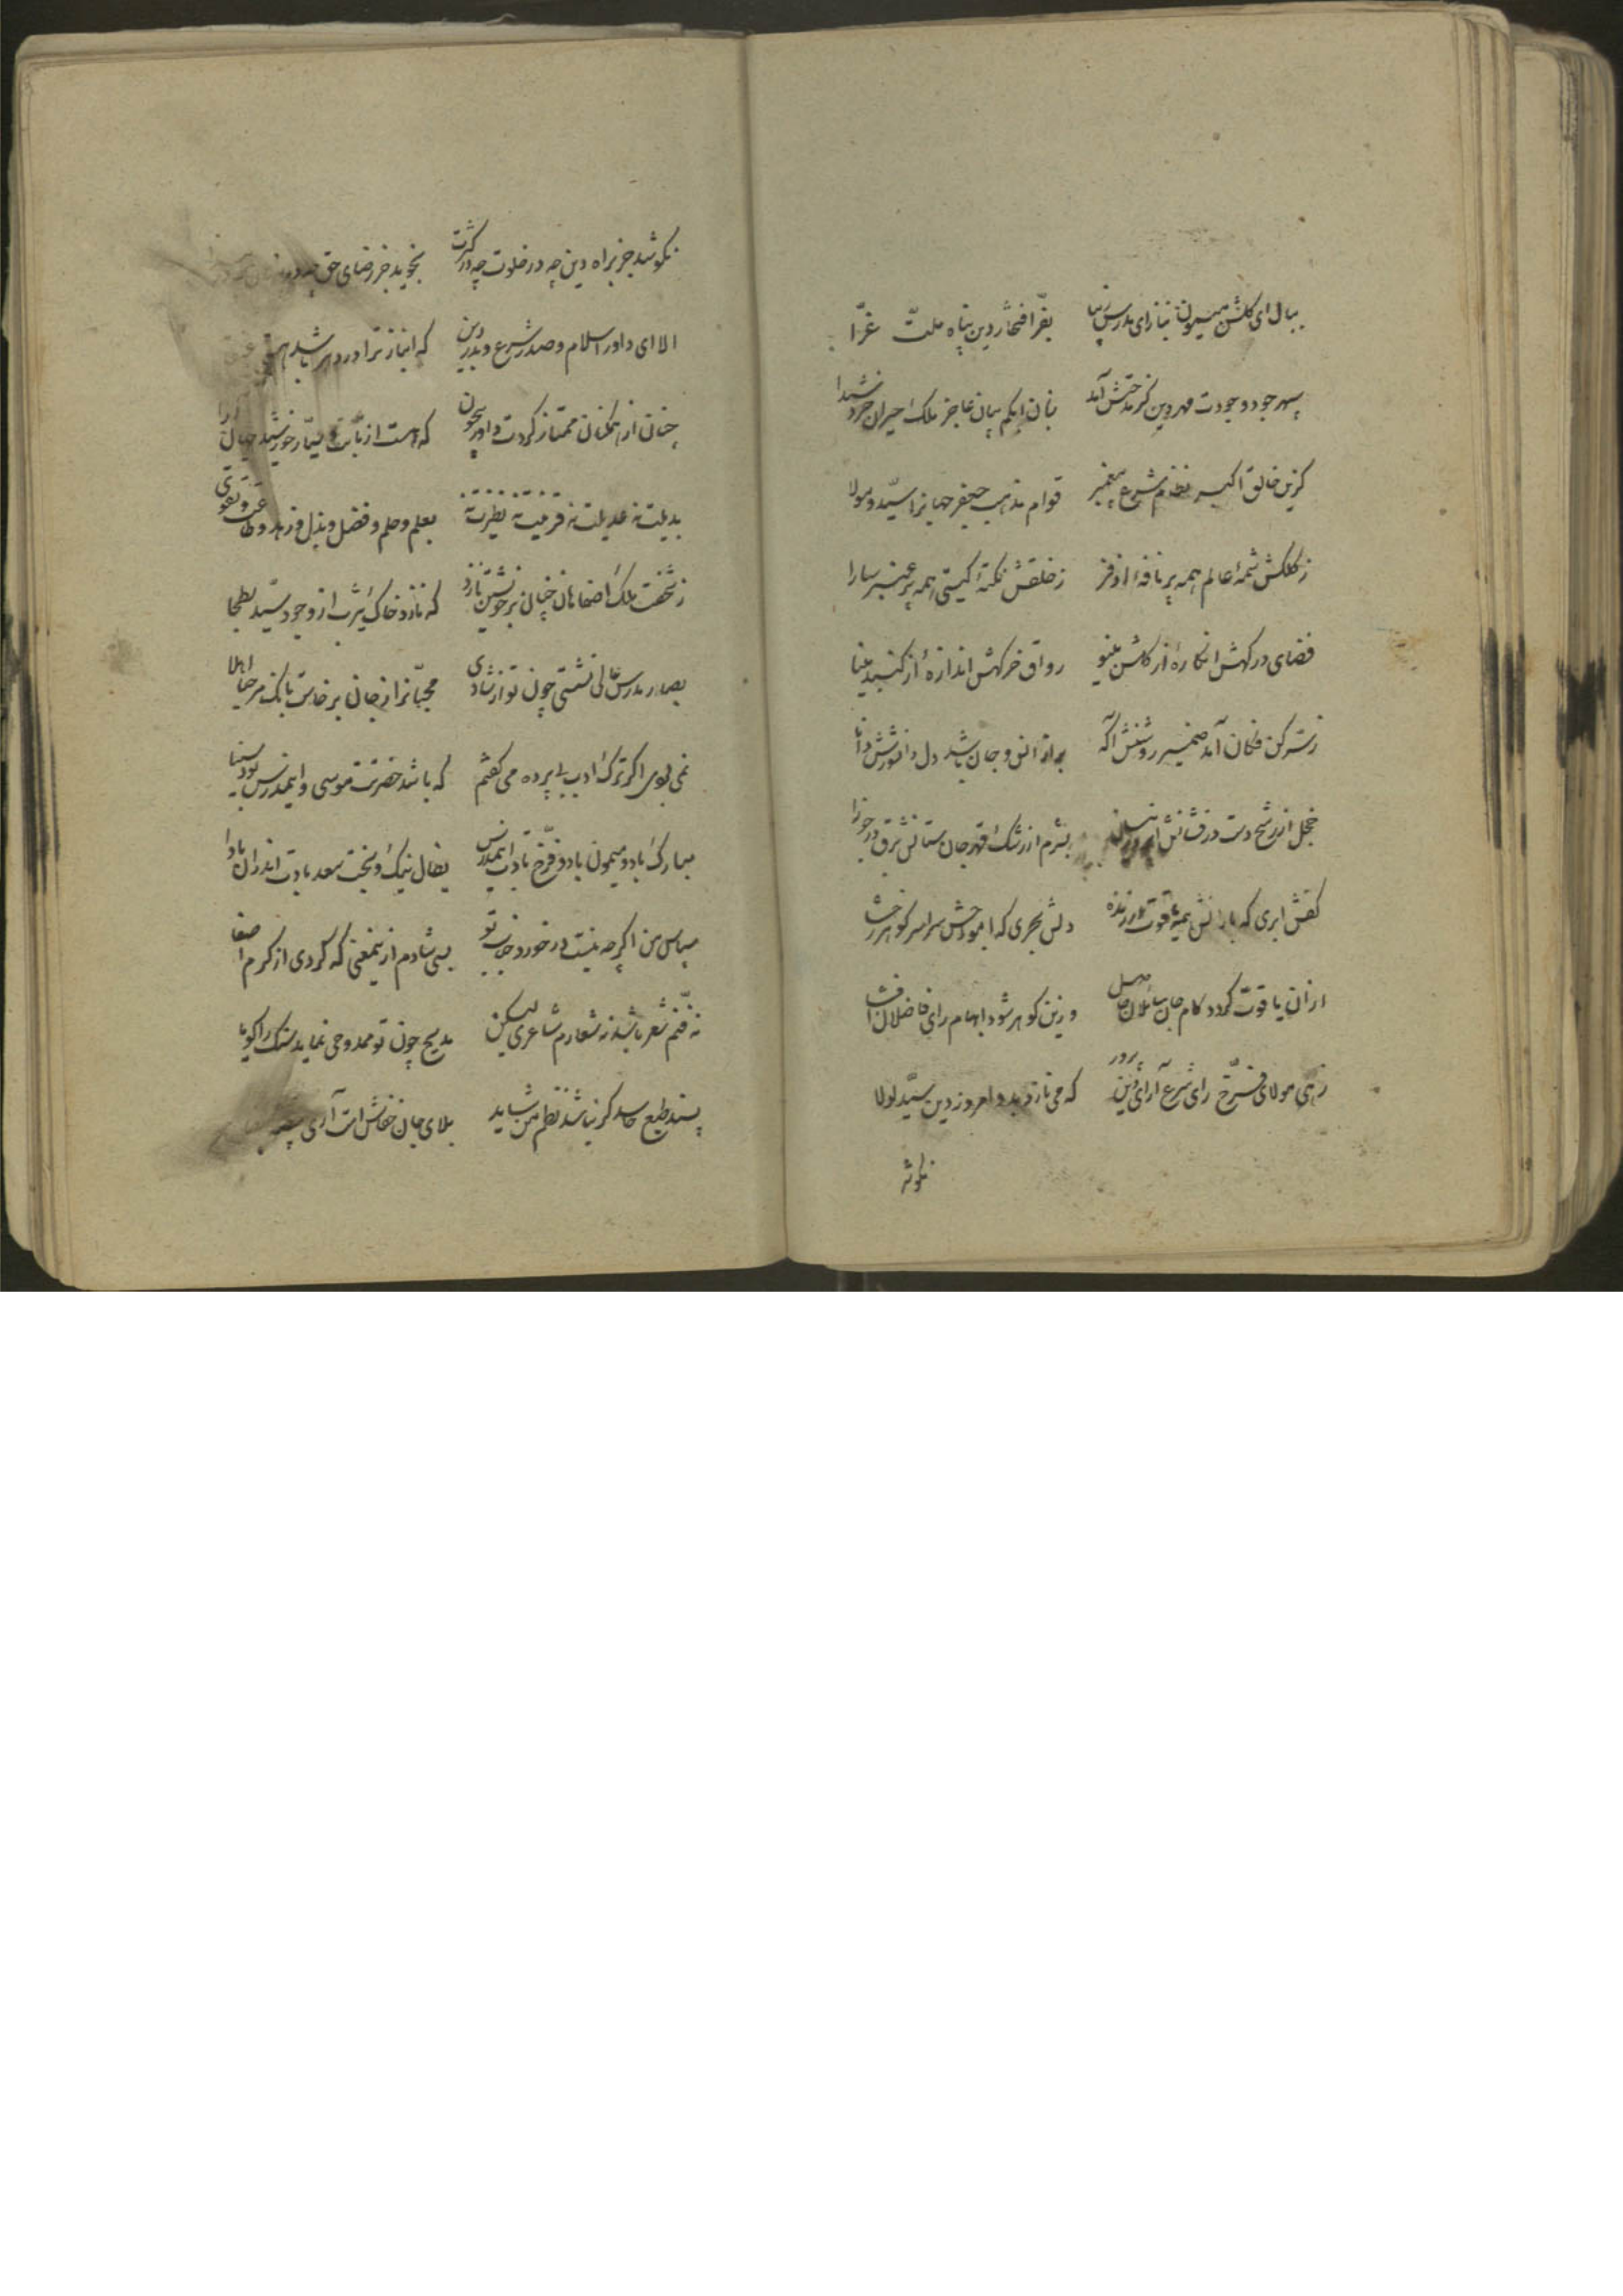 ببال ای گلشن میمون بناز ای مدرس زیبا بفرّ افتخار دین پناه ملت غرّا
سپهر جود و جودت مهر دین کز مدحتش آمد بنان ابکم بیان عاجز ملک حیران خرد شیدا
گزین خالق اکبر نظام شرع پیغمبر قوام مذهب جعفر جهانرا سیّد و مولا
ز کلکش شمهٔ عالم همه پر نافهٔ اذفر ز خلقش نکتهٔ گیتی همه پر عنبر سارا
فضای درگهش انگارهٔ از گلشن مینو رواق خرگهش اندازهٔ از گنبد مینا
ز سر کن فکان آمد ضمیر روشنش آگه براز انس و جان باشد دل دانشورش دانا
خجل از رشح دست درفشانش ابر در نیسان بشرم از رشک قهر جان ستانش برق در جوزا
کفش ابری که بارانش همه یاقوت ارزنده دلش بحری که امواجش سراسر گوهر رخشا
از ان یاقوت گردد کام جان سائلان حاصل وزین گوهر شود ابهام رای فاضلان افشا
زهی مولای فرّخ رای شرع آرای دین پرور که می نازد بدو امروز دین سیّد لولا
نکوشد
نکوشد جز براه دین چه در خلوت چه در کثرت نجوید جز رضای حق چه در
الا ای داور اسلام و صدر شرع و بدر دین که انباز ترا در دهر باشد
چنان از همگنان ممتاز کردت داور بیچون که هست از ثابت و سیّار خورشید جهان آرا
بدیلت نه عدیلت نه قرینت نه نظیرت نه بعلم و حلم و فضل و بذل و زهد و طاعت و تقوی
ز تختت ملک اصفاهان چنان بر خویشتن نازد که نازد خاک یثرب از وجود سیّد بطحا
بصدر مدرس عالی نشستی چون تو از شادی محبّانرا ز جان برخاست بانک مرحبا اهلا
نمی بودی اگر ترک ادب بی پرده می گفتم که باشد حضرتت موسی و این مدرس بود سینا
مبارک باد و میمون باد و فرّخ بادت این مدرس بفال نیک و بخت سعد بادت اندران ماوا
سپاس من اگر چه نیست در خورد جناب تو بسی شادم ازینمعنی که کردی از کرم اصغا
نه فنّم شعر باشد نه شعارم شاعری لیکن مدیح چون تو ممدوحی نماید سنک را گویا
پسند طبع حاسد گر نباشد نظم من شاید بلای جان خفاش است آری